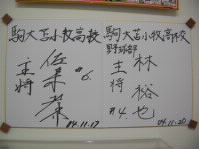 駒大苫小牧高校
主将
佐々木
#6.
04.11.17
駒大苫小牧高校
野球部
主将
林
裕也
#4
04.11.20